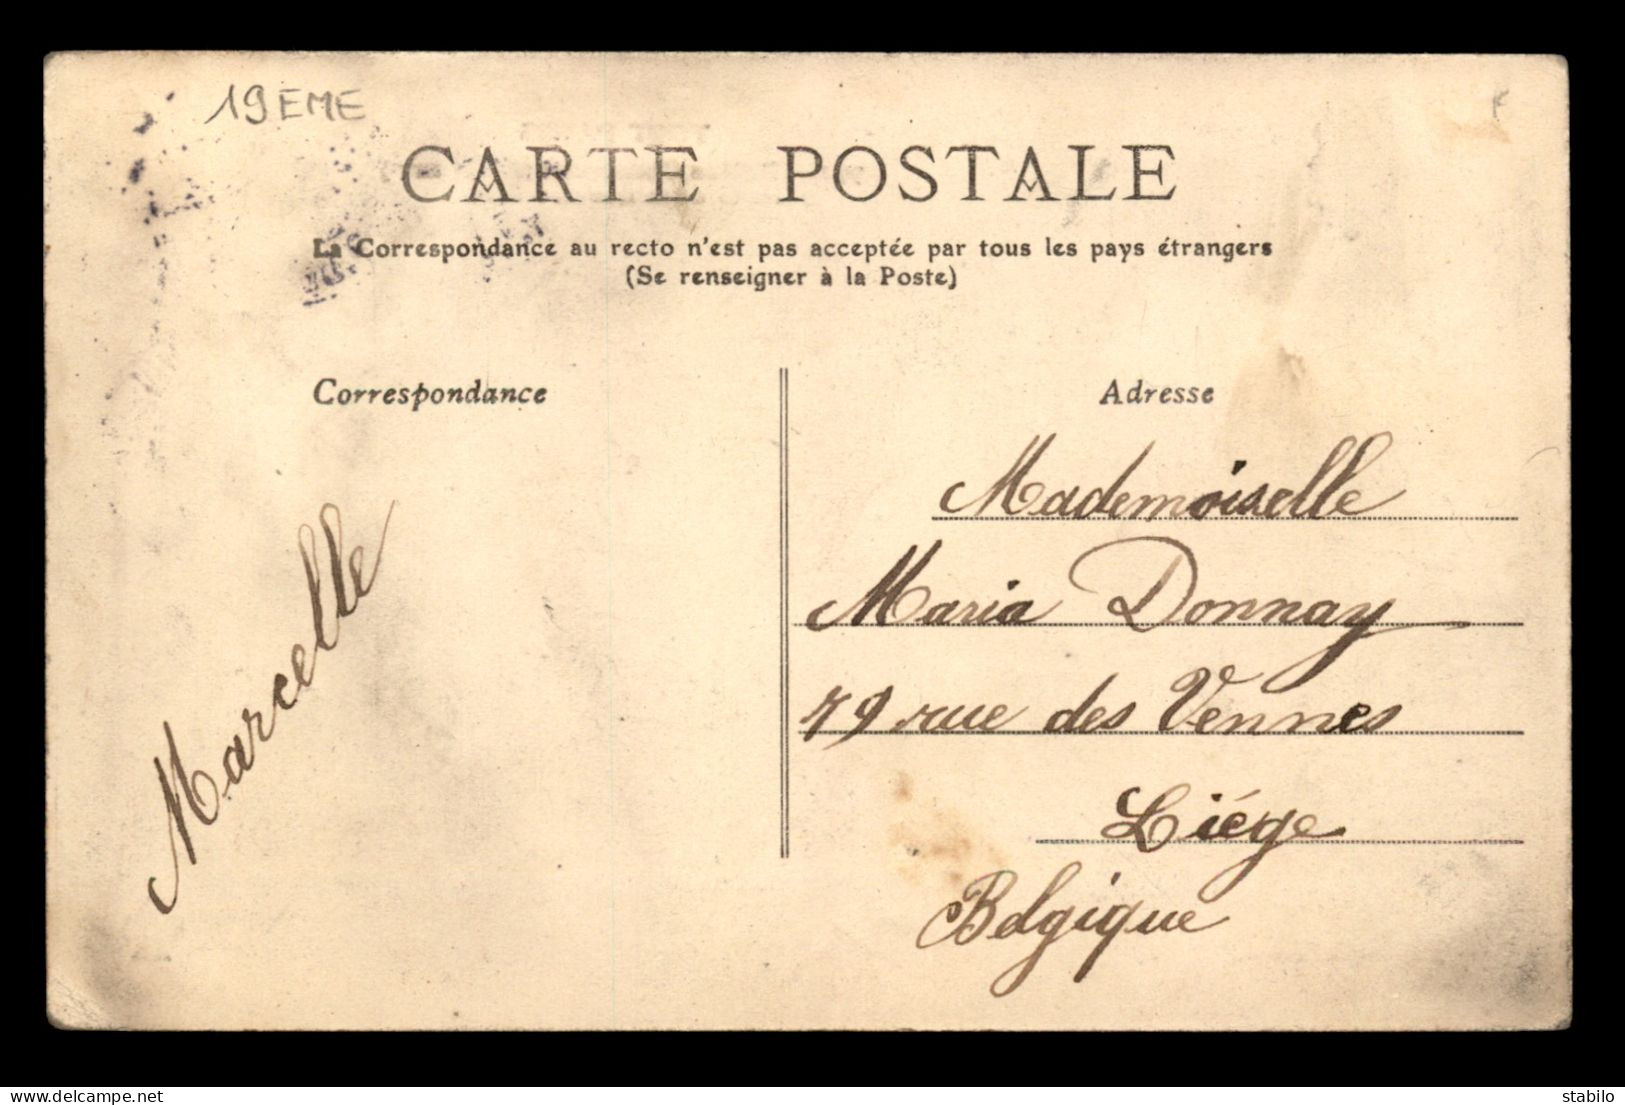 19EME
CARTE POSTALE
La Correspondance au recto n'est pas acceptée par tous les pays étrangers
(Se renseigner à la Poste)
Correspondance
Marcelle
Adresse
Mademoiselle
Maria Donnay
79 rue des Vennes
Liége
Belgique
delcampe.net
stabilo